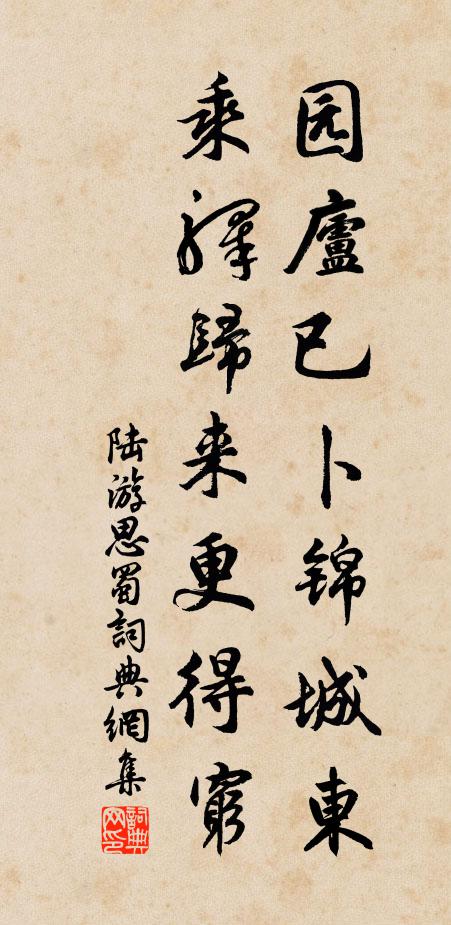 园廬已卜锦城東
乘驛歸来更得窮
陆游思蜀詞典網集
詞典网印